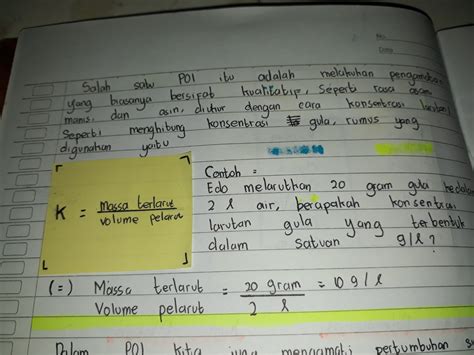 Salah satu POI itu adalah melakukan pengamatan
yang biasanya bersifat kualitatif, seperti rasa asam
manis, dan asin, diukur dengan cara konsentrasi larutan
Seperti menghitung konsentrasi gula, rumus yang
digunakan yaitu
K = Massa terlarut
volume pelarut
Contoh :
Edo melarutkan 20 gram gula kedalam
2 l air, berapakah konsentrasi
larutan gula yang terbentuk
dalam satuan g/l?
(=) Massa terlarut = 20 gram = 10 g/l
Volume pelarut 2 l
Dalam POI kita juga mengamati pertumbuhan